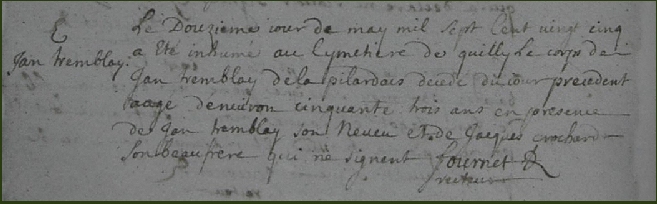 Le Douzieme iour de may mil sept Cent vingt cinq
Jan tremblay.
a Ete inhumé au Cymetiere de quilly Le corps de
Jan tremblay de la pilardais decedé du iour precedent
aagé denuiron cinquante trois ans en presence
de Jan tremblay son Neveu et de Jacques crochard
son beaufrere qui ne signent fournet
recteur